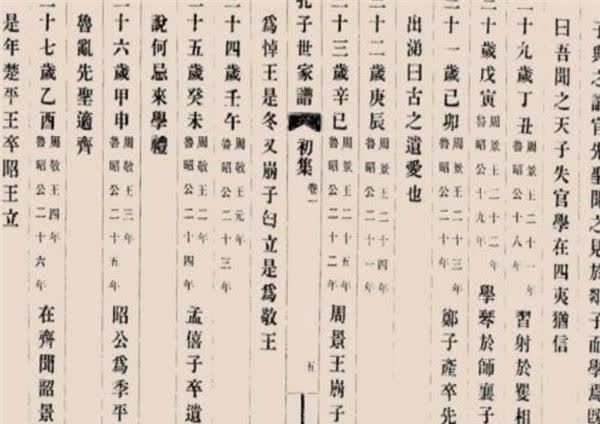 子與之論官先聖聞之見於郯子而學焉既
曰吾聞之天子失官學在四夷猶信
二十九歲丁丑 周景王二十一年 魯昭公十八年 習射於矍相
三十歲戊寅 周景王二十二年 魯昭公十九年 學琴於師襄子
三十一歲己卯 周景王二十三年 魯昭公二十年 鄭子產卒先
出涕曰古之遺愛也
三十二歲庚辰 周景王二十四年 魯昭公二十一年
三十三歲辛巳 周景王二十五年 魯昭公二十二年 周景王崩子
孔子世家譜 初集 卷一 五
爲悼王是冬又崩子匄立是爲敬王
三十四歲壬午 周敬王元年 魯昭公二十三年
三十五歲癸未 周敬王二年 魯昭公二十四年 孟僖子卒遺
說何忌來學禮
三十六歲甲申 周敬王三年 魯昭公二十五年 昭公爲季平
魯亂先聖適齊
三十七歲乙酉 周敬王四年 魯昭公二十六年 在齊聞韶景
是年楚平王卒昭王立